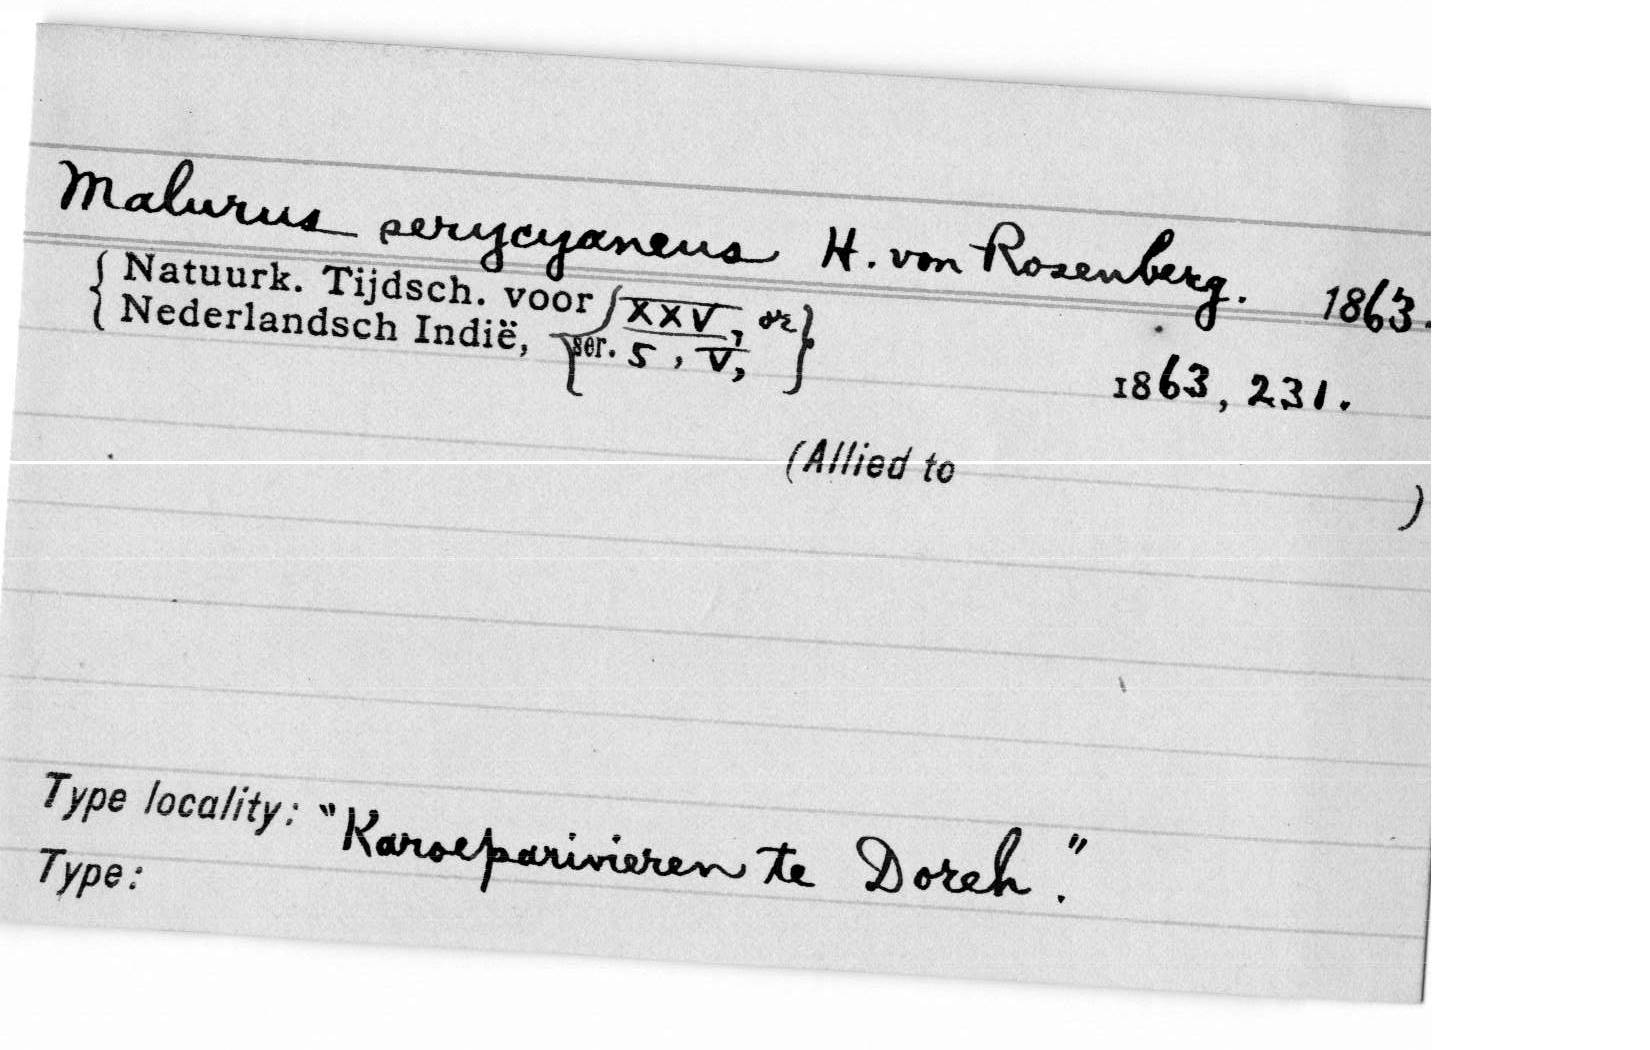 Malurus serycyaneus H. von Rosenberg. 1863.
{ Natuurk. Tijdsch. voor { XXV, or }
{ Nederlandsch Indië, { ser. 5, V, } 1863, 231.
(Allied to )
Type locality: "Karoeparivieren te Doreh."
Type: